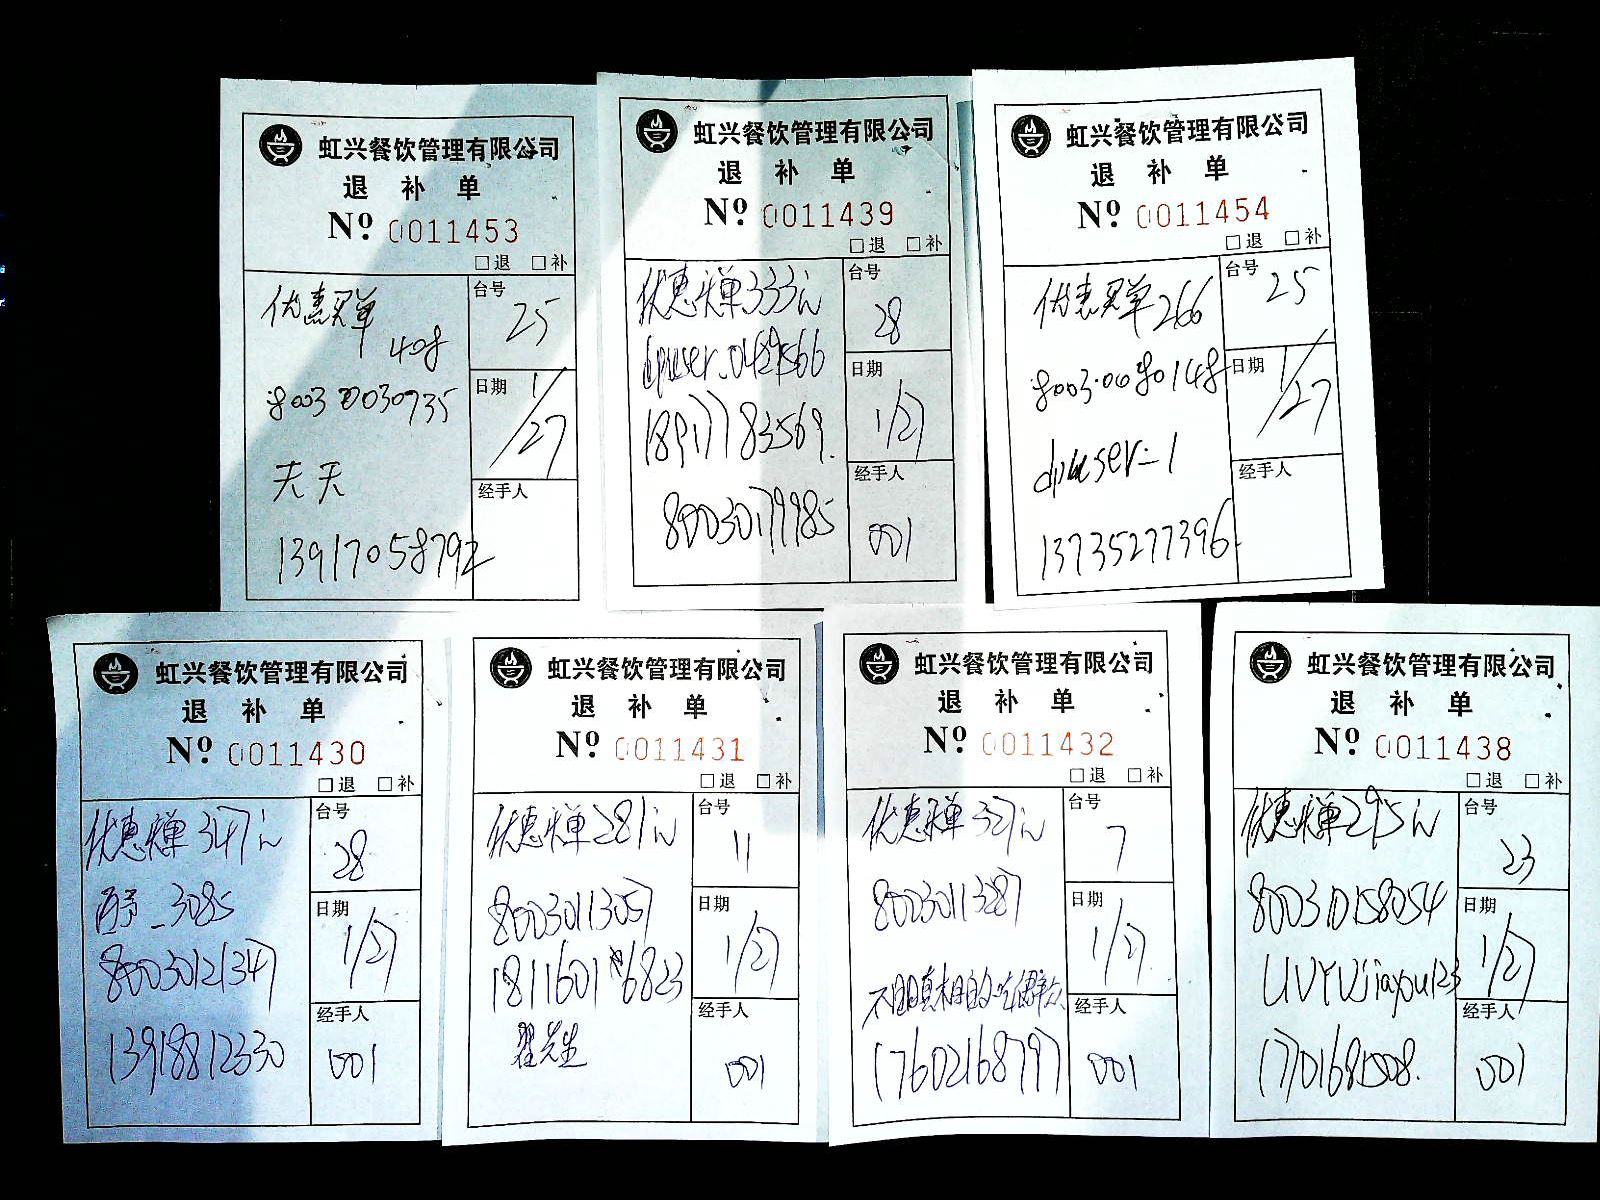 虹兴餐饮管理有限公司
退 补 单
Nº 0011453
□退 □补
优惠买单
408
台号
25
80030030735
日期
1/27
天天
经手人
13917058792
虹兴餐饮管理有限公司
退 补 单
Nº 0011439
□退 □补
优惠买单333元
台号
28
日期
1/27
18917783569.
经手人
80030179985
001
虹兴餐饮管理有限公司
退 补 单
Nº 0011454
□退 □补
优惠买单266
台号
25
日期
1/27
dpuser-1
经手人
13735277396
虹兴餐饮管理有限公司
退 补 单
Nº 0011430
□退 □补
优惠买单347元
台号
28
_3085
日期
1/27
80030121347
经手人
13918812330
001
虹兴餐饮管理有限公司
退 补 单
Nº 0011431
□退 □补
优惠买单281元
台号
11
80030113057
日期
1/27
18116016823
经手人
翟先生
001
虹兴餐饮管理有限公司
退 补 单
Nº 0011432
□退 □补
优惠买单327元
台号
7
80030113287
日期
1/27
不明真相的吃瓜群众
经手人
17602168797
001
虹兴餐饮管理有限公司
退 补 单
Nº 0011438
□退 □补
优惠买单295元
台号
23
日期
1/27
经手人
001